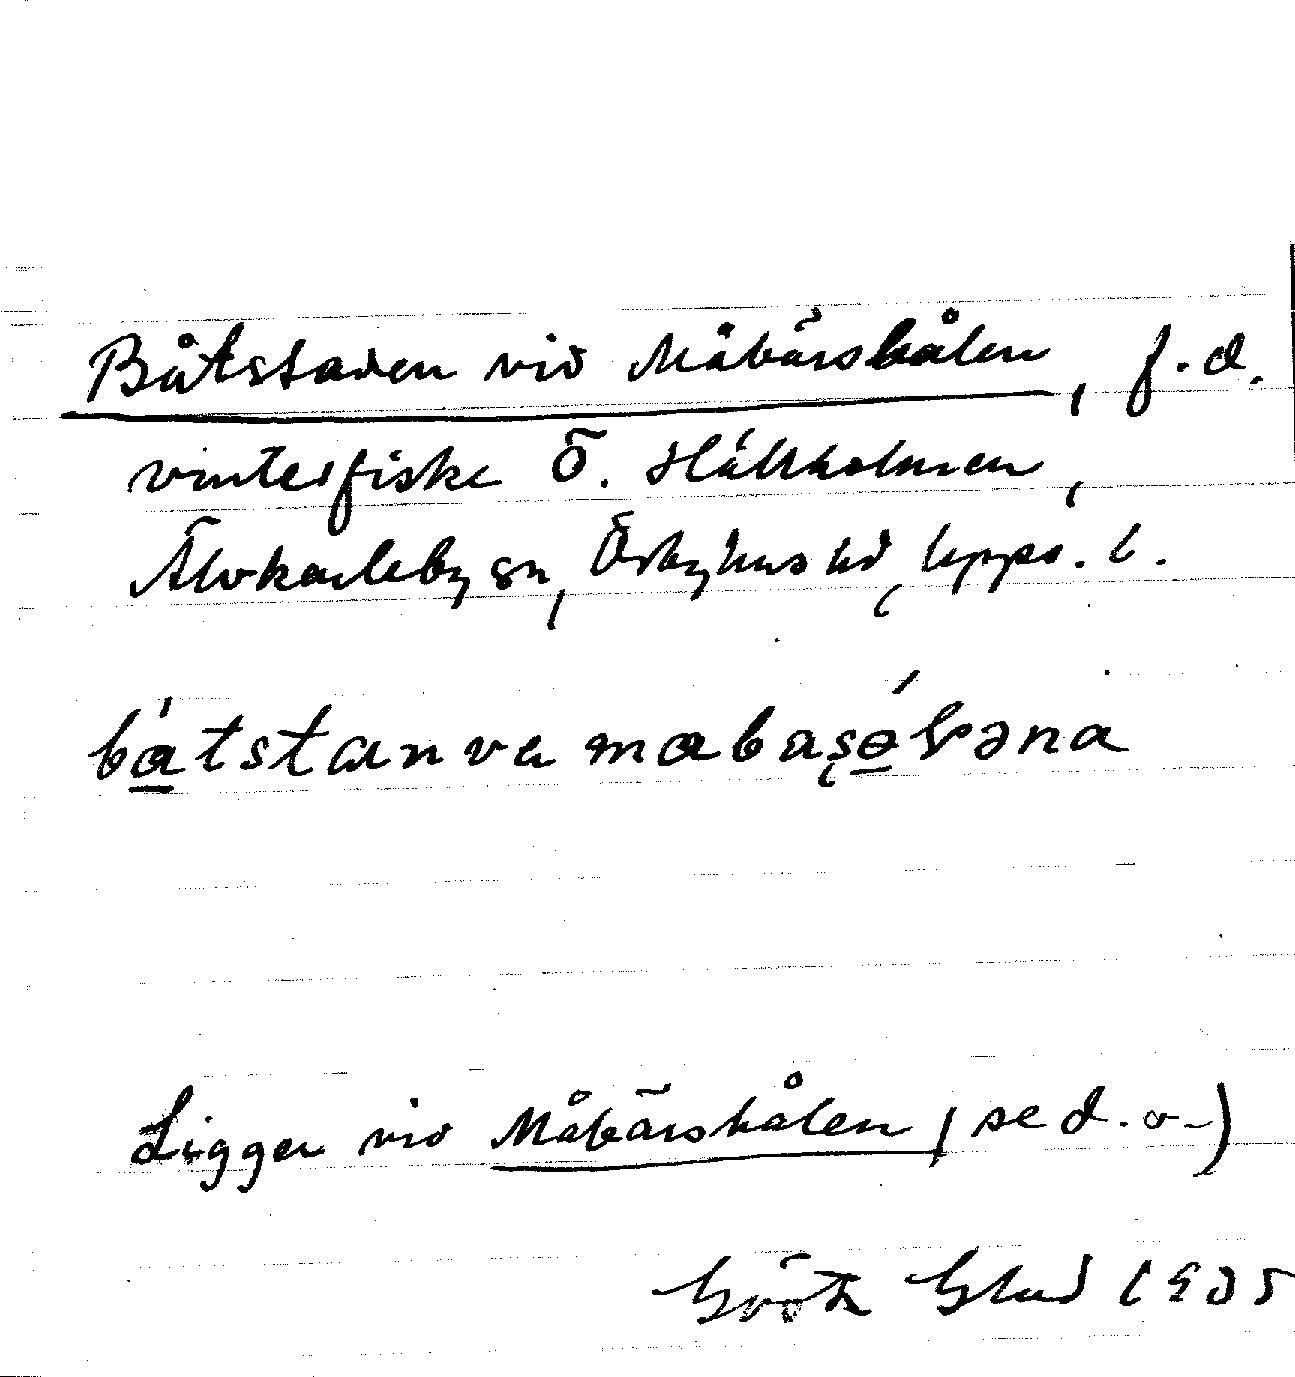 Båtstaden vid Måbärshålen, f.d.
vinterfiske Ö. Hållholmen,
Älvkarleby sn, Örbyhus hd, Upps. l.
båtstan va
Ligger vid Måbärshålen (se d. o.)
Götz Glad 1935